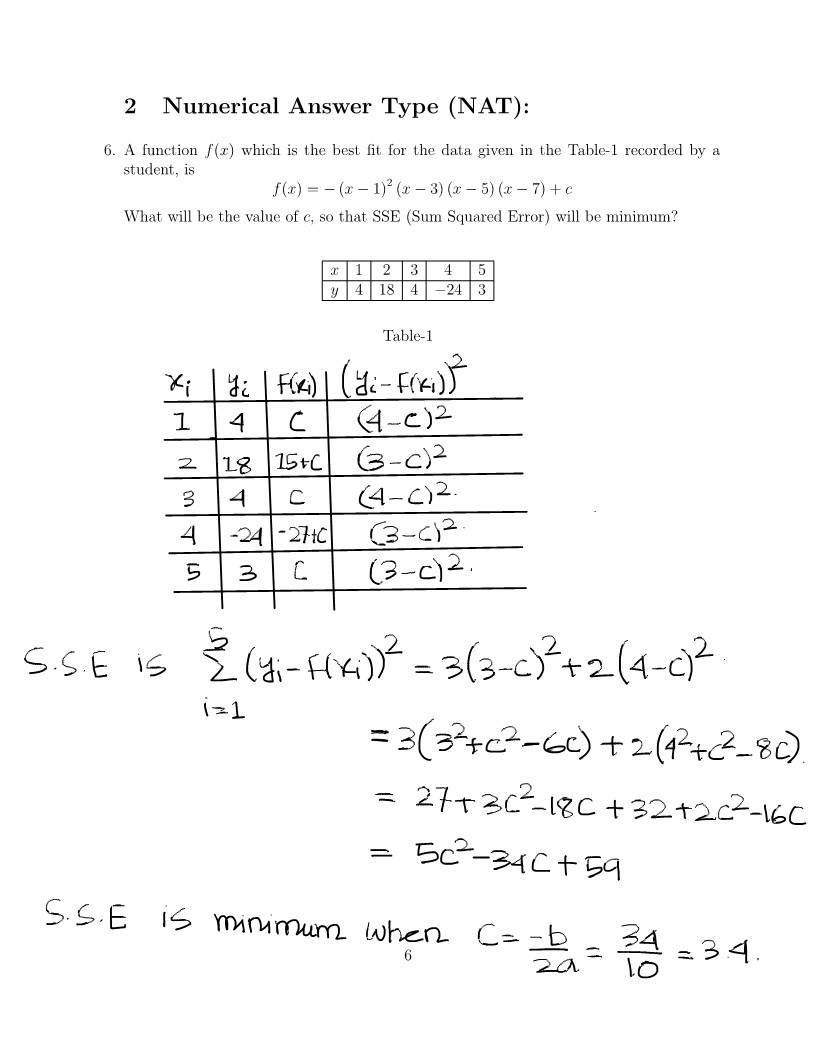 2 Numerical Answer Type (NAT):
6. A function f(x) which is the best fit for the data given in the Table-1 recorded by a
student, is
f(x) = − (x − 1)² (x − 3) (x − 5) (x − 7) + c
What will be the value of c, so that SSE (Sum Squared Error) will be minimum?
x 1 2 3 4 5
y 4 18 4 −24 3
Table-1
xi yi F(xi) (yi-F(xi))²
1 4 C (4-C)²
2 18 15+C (3-C)²
3 4 C (4-C)².
4 -24 -27+C (3-C)².
5 3 C (3-C)².
S.S.E is 5∑i=1 (yi-F(xi))² = 3(3-C)²+2(4-C)².
= 3(3²+C²-6C) + 2(4²+C²-8C).
= 27+3C²-18C+32+2C²-16C
= 5C²-34C+59
S.S.E is minimum when C = -b/2a = 34/10 = 3.4.
6